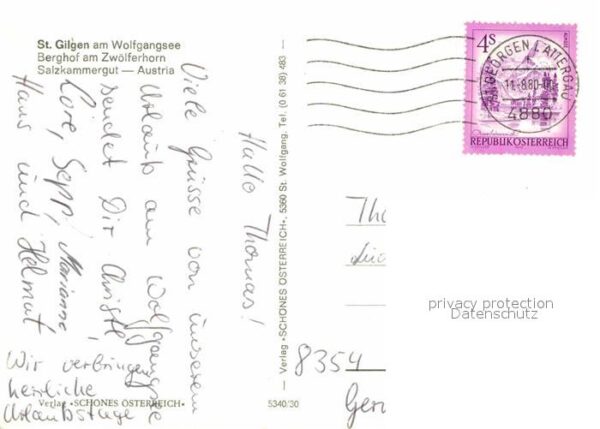 St. Gilgen am Wolfgangsee
Berghof am Zwölferhorn
Salzkammergut — Austria
Hallo Thomas!
Viele Grüsse von unserem
Urlaub am Wolfgangsee
sendet Dir Christl,
Lore, Sepp, Marianne,
Hans und Helmut
Wir verbringen
herrliche
Urlaubstage
Verlag «SCHÖNES ÖSTERREICH»
5340/30
— Verlag «SCHÖNES ÖSTERREICH», 5360 St. Wolfgang, Tel. (0 61 38) 483 —
4S
REPUBLIK ÖSTERREICH
ST. GEORGEN I. ATTERGAU
11.-8.80
4880
Th
8354
Ger
privacy protection
Datenschutz